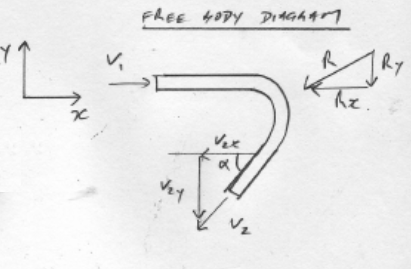 FREE BODY DIAGRAM
Y
x
V₁
R
Ry
Rx
V₂x
α
V₂y
V₂